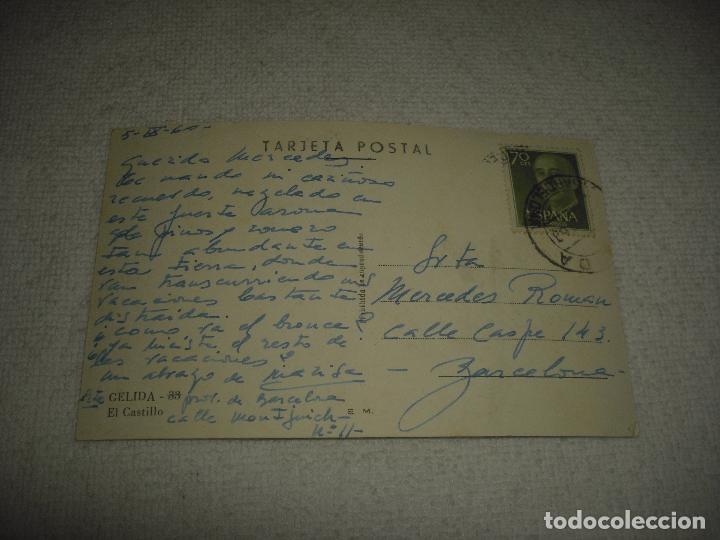 TARJETA POSTAL
Querida Mercedes
te mando mi cariñoso
recuerdo, mezclado en
este fuerte aroma
de pinos y romero
tan abundante en
esta tierra, donde
van transcurriendo mis
vacaciones bastante
distraida.
¿ como va el bronce
ya hiciste el resto de
las vacaciones?
un abrazo de Marisa
GELIDA - 33 prov. de Barcelona
El Castillo calle Montjuich
Nº 11-
E. M.
70 CTS
ESPAÑA
Srta
Mercedes Roman
Calle Caspe 143.
- Barcelona -
todocoleccion.net